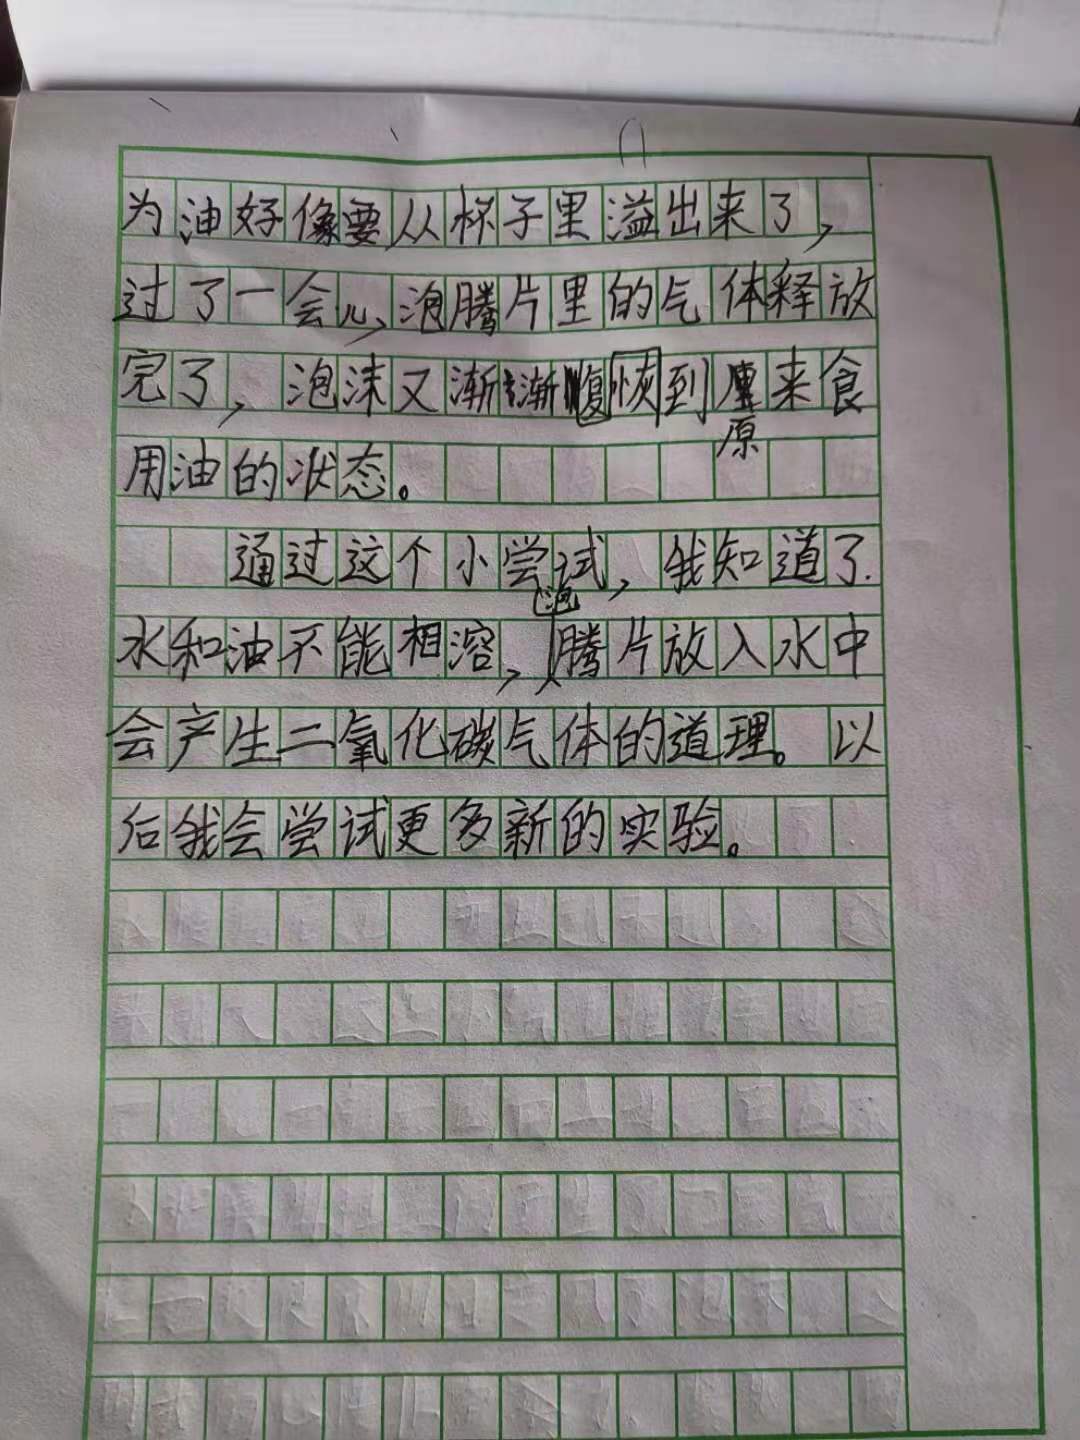 为油好像要从杯子里溢出来了，
过了一会儿，泡腾片里的气体释放
完了，泡沫又渐渐恢复到原来食
用油的状态。
通过这个小尝试，我知道了
水和油不能相溶，泡腾片放入水中
会产生二氧化碳气体的道理。以
后我会尝试更多新的实验。